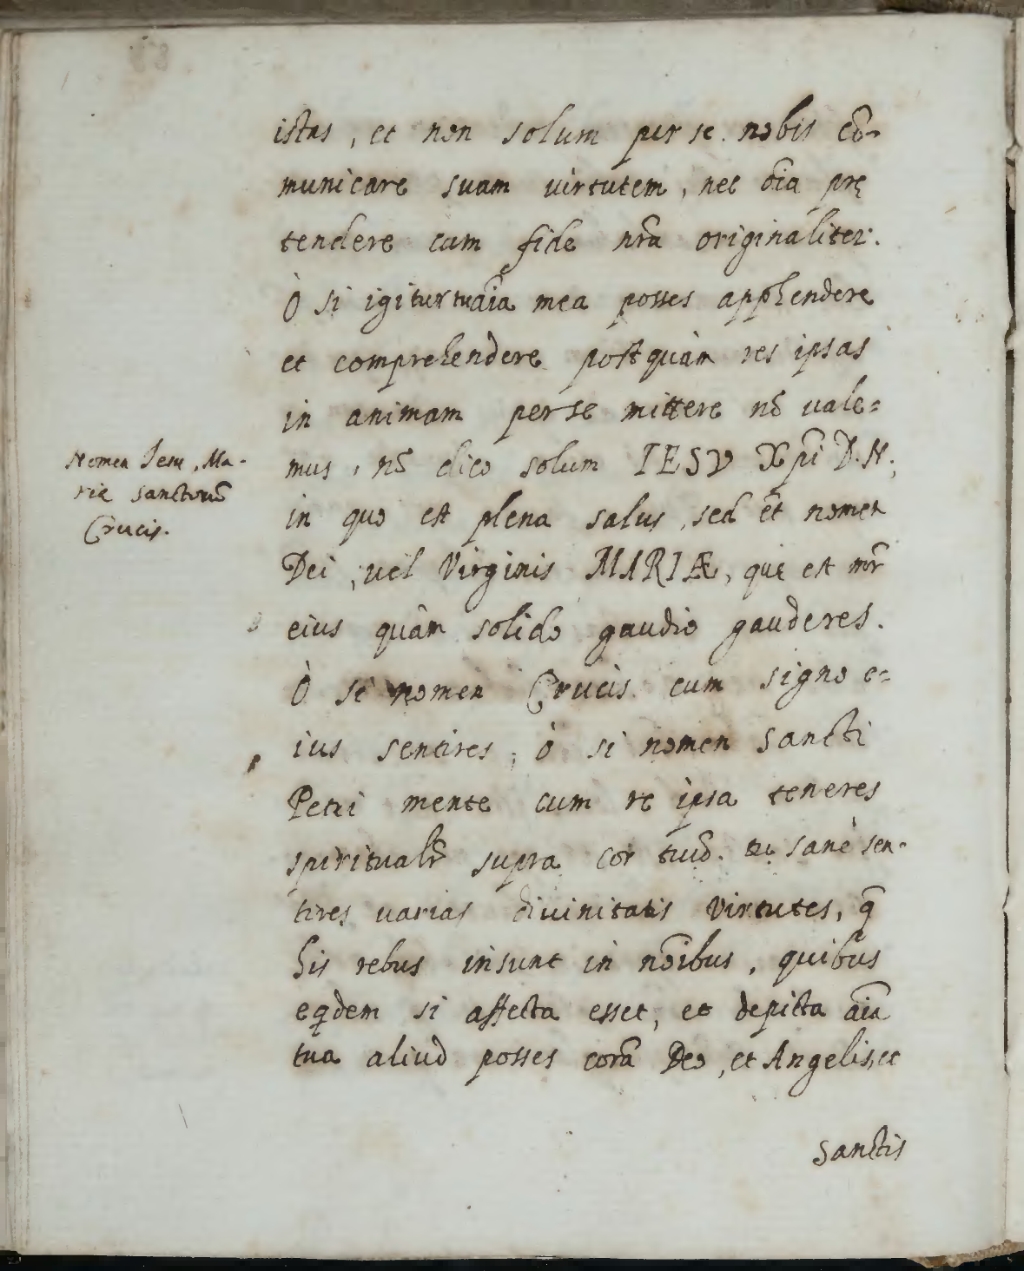 istas, et non solum per se nobis cō-
municare suam virtutem, nec oīa prę
tendere cum fide nrā originaliter.
O si igitur tu aīa mea posses apphendere
et comprehendere postquàm res ipsas
in animam per se mittere nō uale=
mus, nō dico solum IESV Xpi D. N.,
in quo est plena salus, sed et nomen
Dei, uel Virginis MARIÆ, quę est mr̄
eius quàm solido gaudio gauderes.
Nomen Iesu, Ma-
rię sanctorū
Crucis.
Ò si nomen Crucis cum signo e=
ius sentires, ò si nomen Sancti
Petri mente cum re ipsa teneres
spiritualr̄ supra cor tuū. tu sanè sen-
tires uarias diuinitatis virtutes, q̄
his rebus insunt in noībus, quibus
eqdem si affecta esset, et depicta aīa
tua aliud posses corā Deo, et Angelis, et
Sanctis